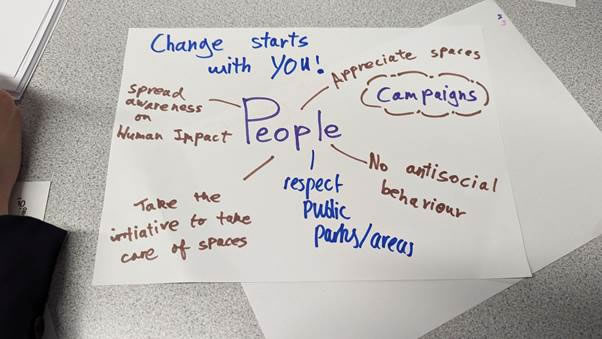 Change starts
with YOU!
Appreciate spaces
Campaigns
Spread
awareness
on
Human Impact
People
No antisocial
behaviour
respect
public
parks/areas
Take the
intiative to take
care of spaces